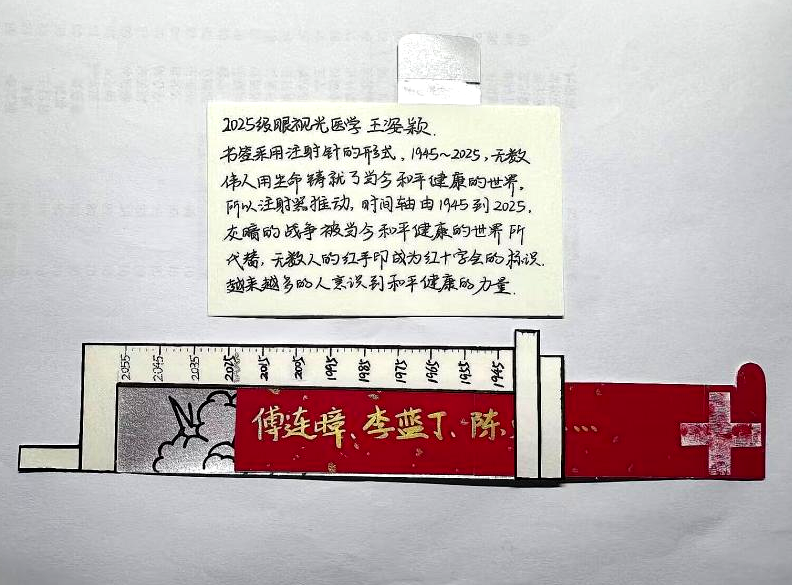 2025级眼视光医学 王姿颖.
书签采用注射针的形式，1945~2025，无数
伟人用生命铸就了当今和平健康的世界。
所以注射器推动，时间轴由1945到2025，
灰暗的战争被当今和平健康的世界所
代替，无数人的红手印成为红十字会的标识.
越来越多的人意识到和平健康的力量.
2055 2045 2035 2025 2015 2005 1995 1985 1975 1965 1955 1945
傅连暲、李蓝丁、陈